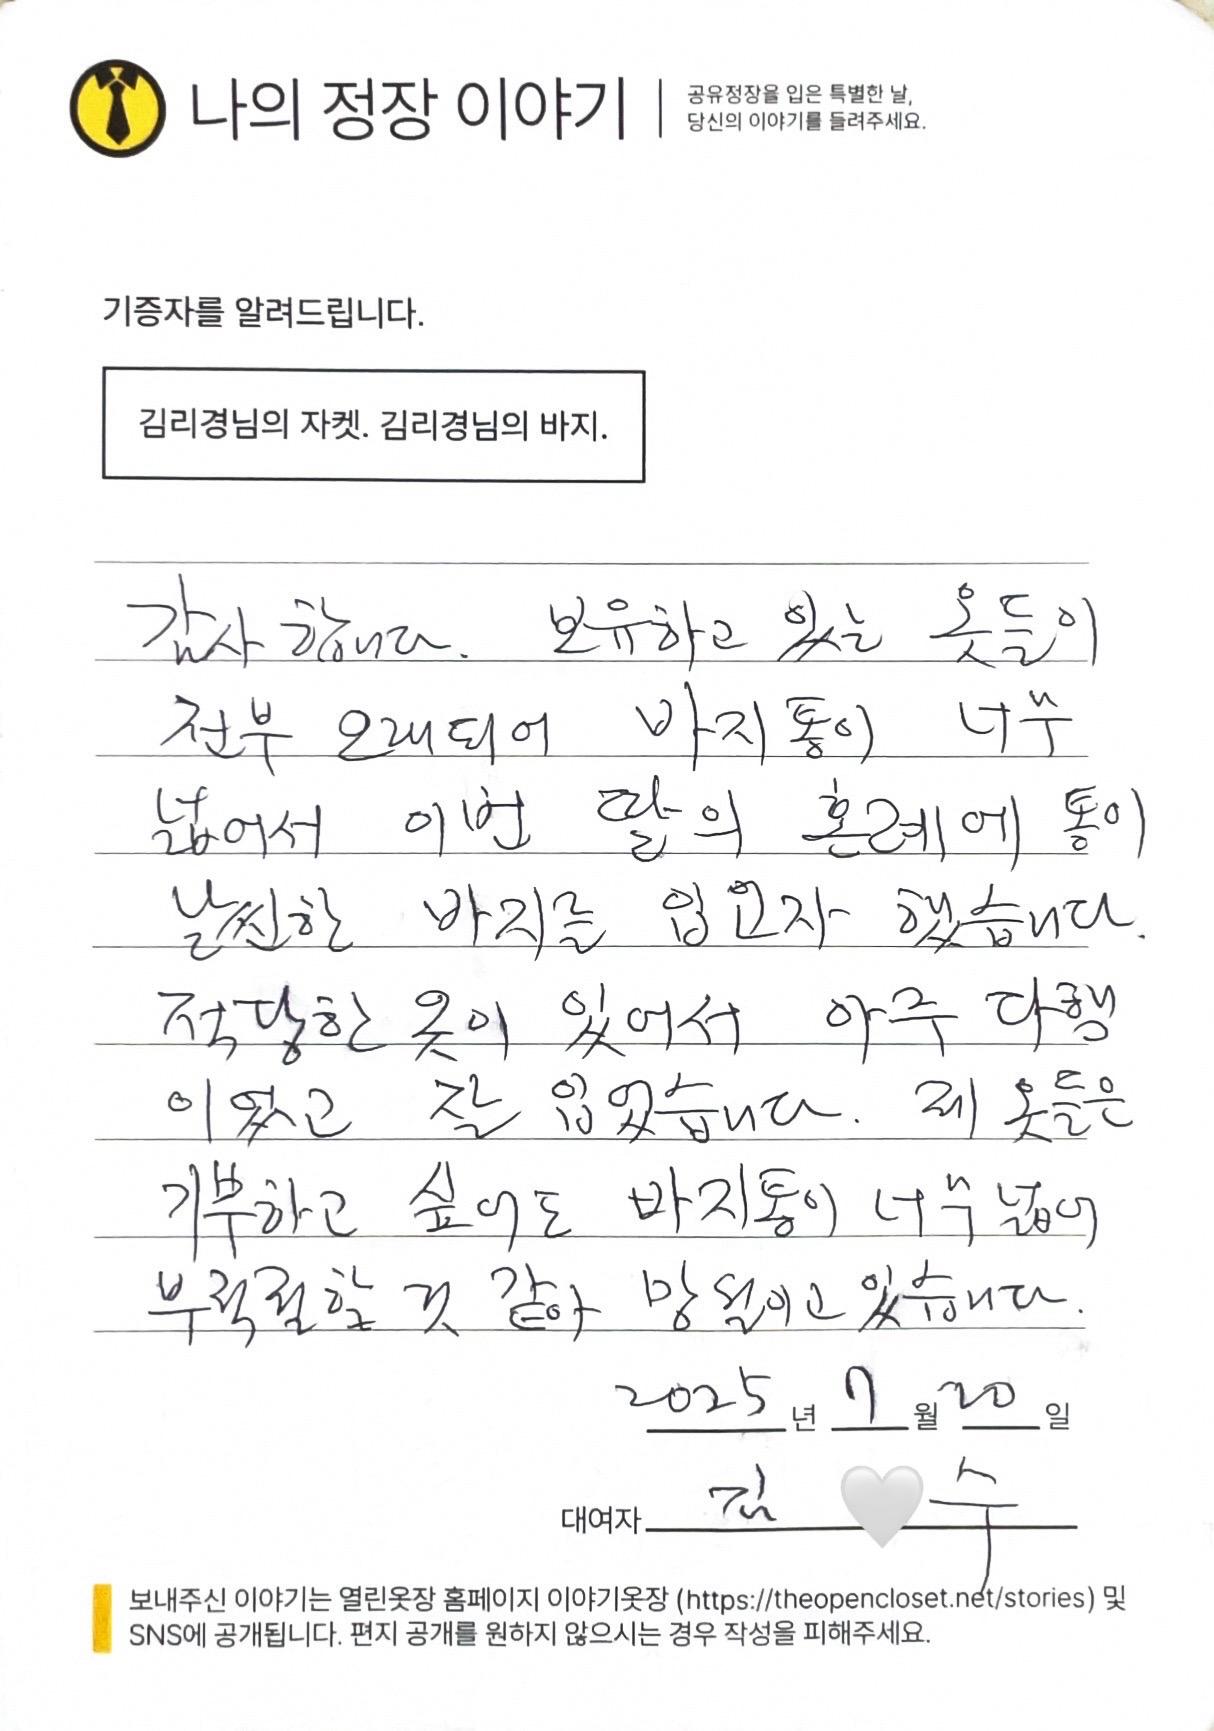 나의 정장 이야기
공유정장을 입은 특별한 날,
당신의 이야기를 들려주세요.
기증자를 알려드립니다.
김리경님의 자켓. 김리경님의 바지.
감사합니다. 보유하고 있는 옷들이
전부 오래되어 바지통이 너무
넓어서 이번 딸의 혼례에 통이
날씬한 바지를 입고자 했습니다.
적당한 옷이 있어서 아주 다행
이였고 잘 입었습니다. 제 옷들은
기부하고 싶어도 바지통이 너무 넓어
부적절할 것 같아 망설이고 있습니다.
2025년 7월 20일
대여자 김 수
보내주신 이야기는 열린옷장 홈페이지 이야기옷장 (https://theopencloset.net/stories) 및
SNS에 공개됩니다. 편지 공개를 원하지 않으시는 경우 작성을 피해주세요.